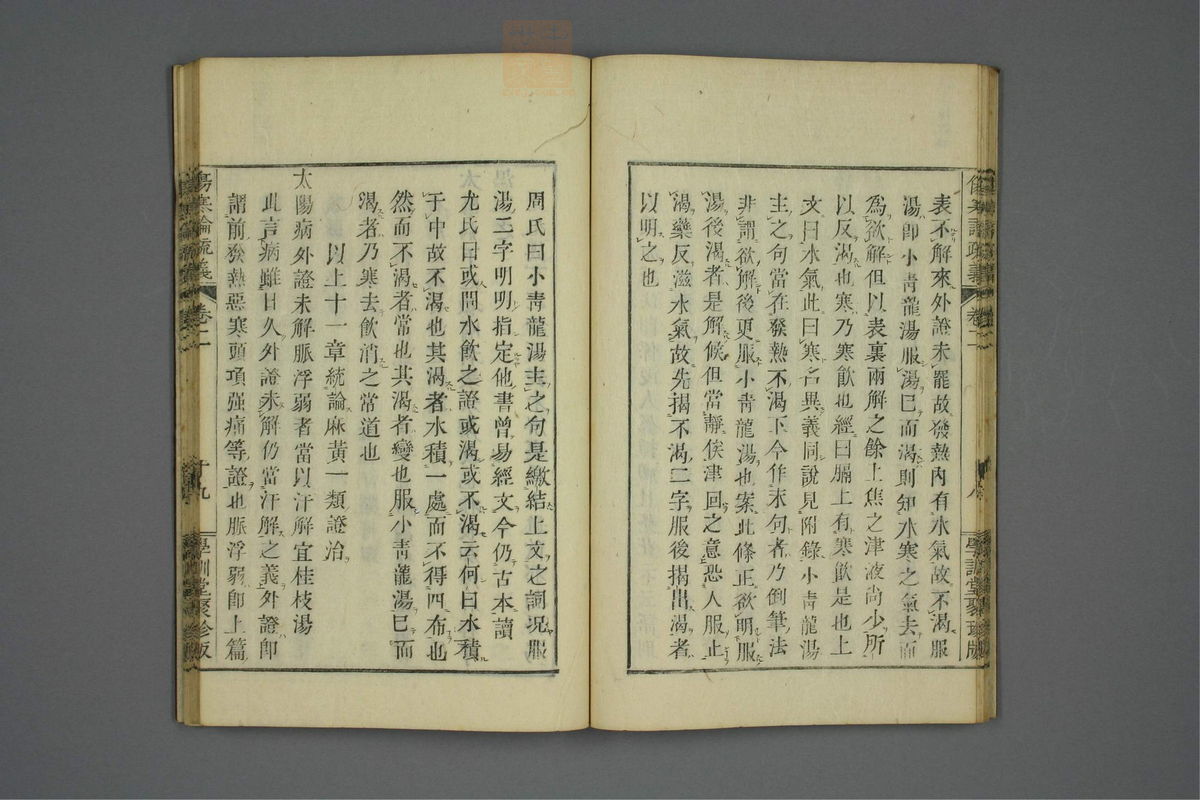 表不解來外證未罷故發熱內有水氣故不渴服
湯卽小靑龍湯服湯已而渴則知水寒之氣去而
爲欲解但以表裏兩解之餘上焦之津液尙少所
以反渴也寒乃寒飮也經曰膈上有寒飮是也上
文曰水氣此曰寒名異義同說見附錄小靑龍湯
主之句當在發熱不渴下今作末句者乃倒筆法
非謂欲解後更服小靑龍湯也案此條正欲明服
湯後渴者是解候但當靜俟津回之意恐人服止
渴藥反滋水氣故先揭不渴二字服後揭出渴者
以明之也
周氏曰小靑龍湯主之句是繳結上文之詞況服
湯二字明明指定他書曾易經文今仍古本讀
尤氏曰或問水飮之證或渴或不渴云何曰水積
于中故不渴也其渴者水積一處而不得四布也
然而不渴者常也其渴者變也服小靑龍湯已而
渴者乃寒去飮消之常道也
以上十一章統論麻黃一類證治
太陽病外證未解脈浮弱者當以汗解宜桂枝湯
此言病雖日久外證未解仍當汗解之義外證卽
謂前發熱惡寒頭項强痛等證也脈浮弱卽上篇
傷寒論疏義
卷二
十九
學訓堂聚珍版